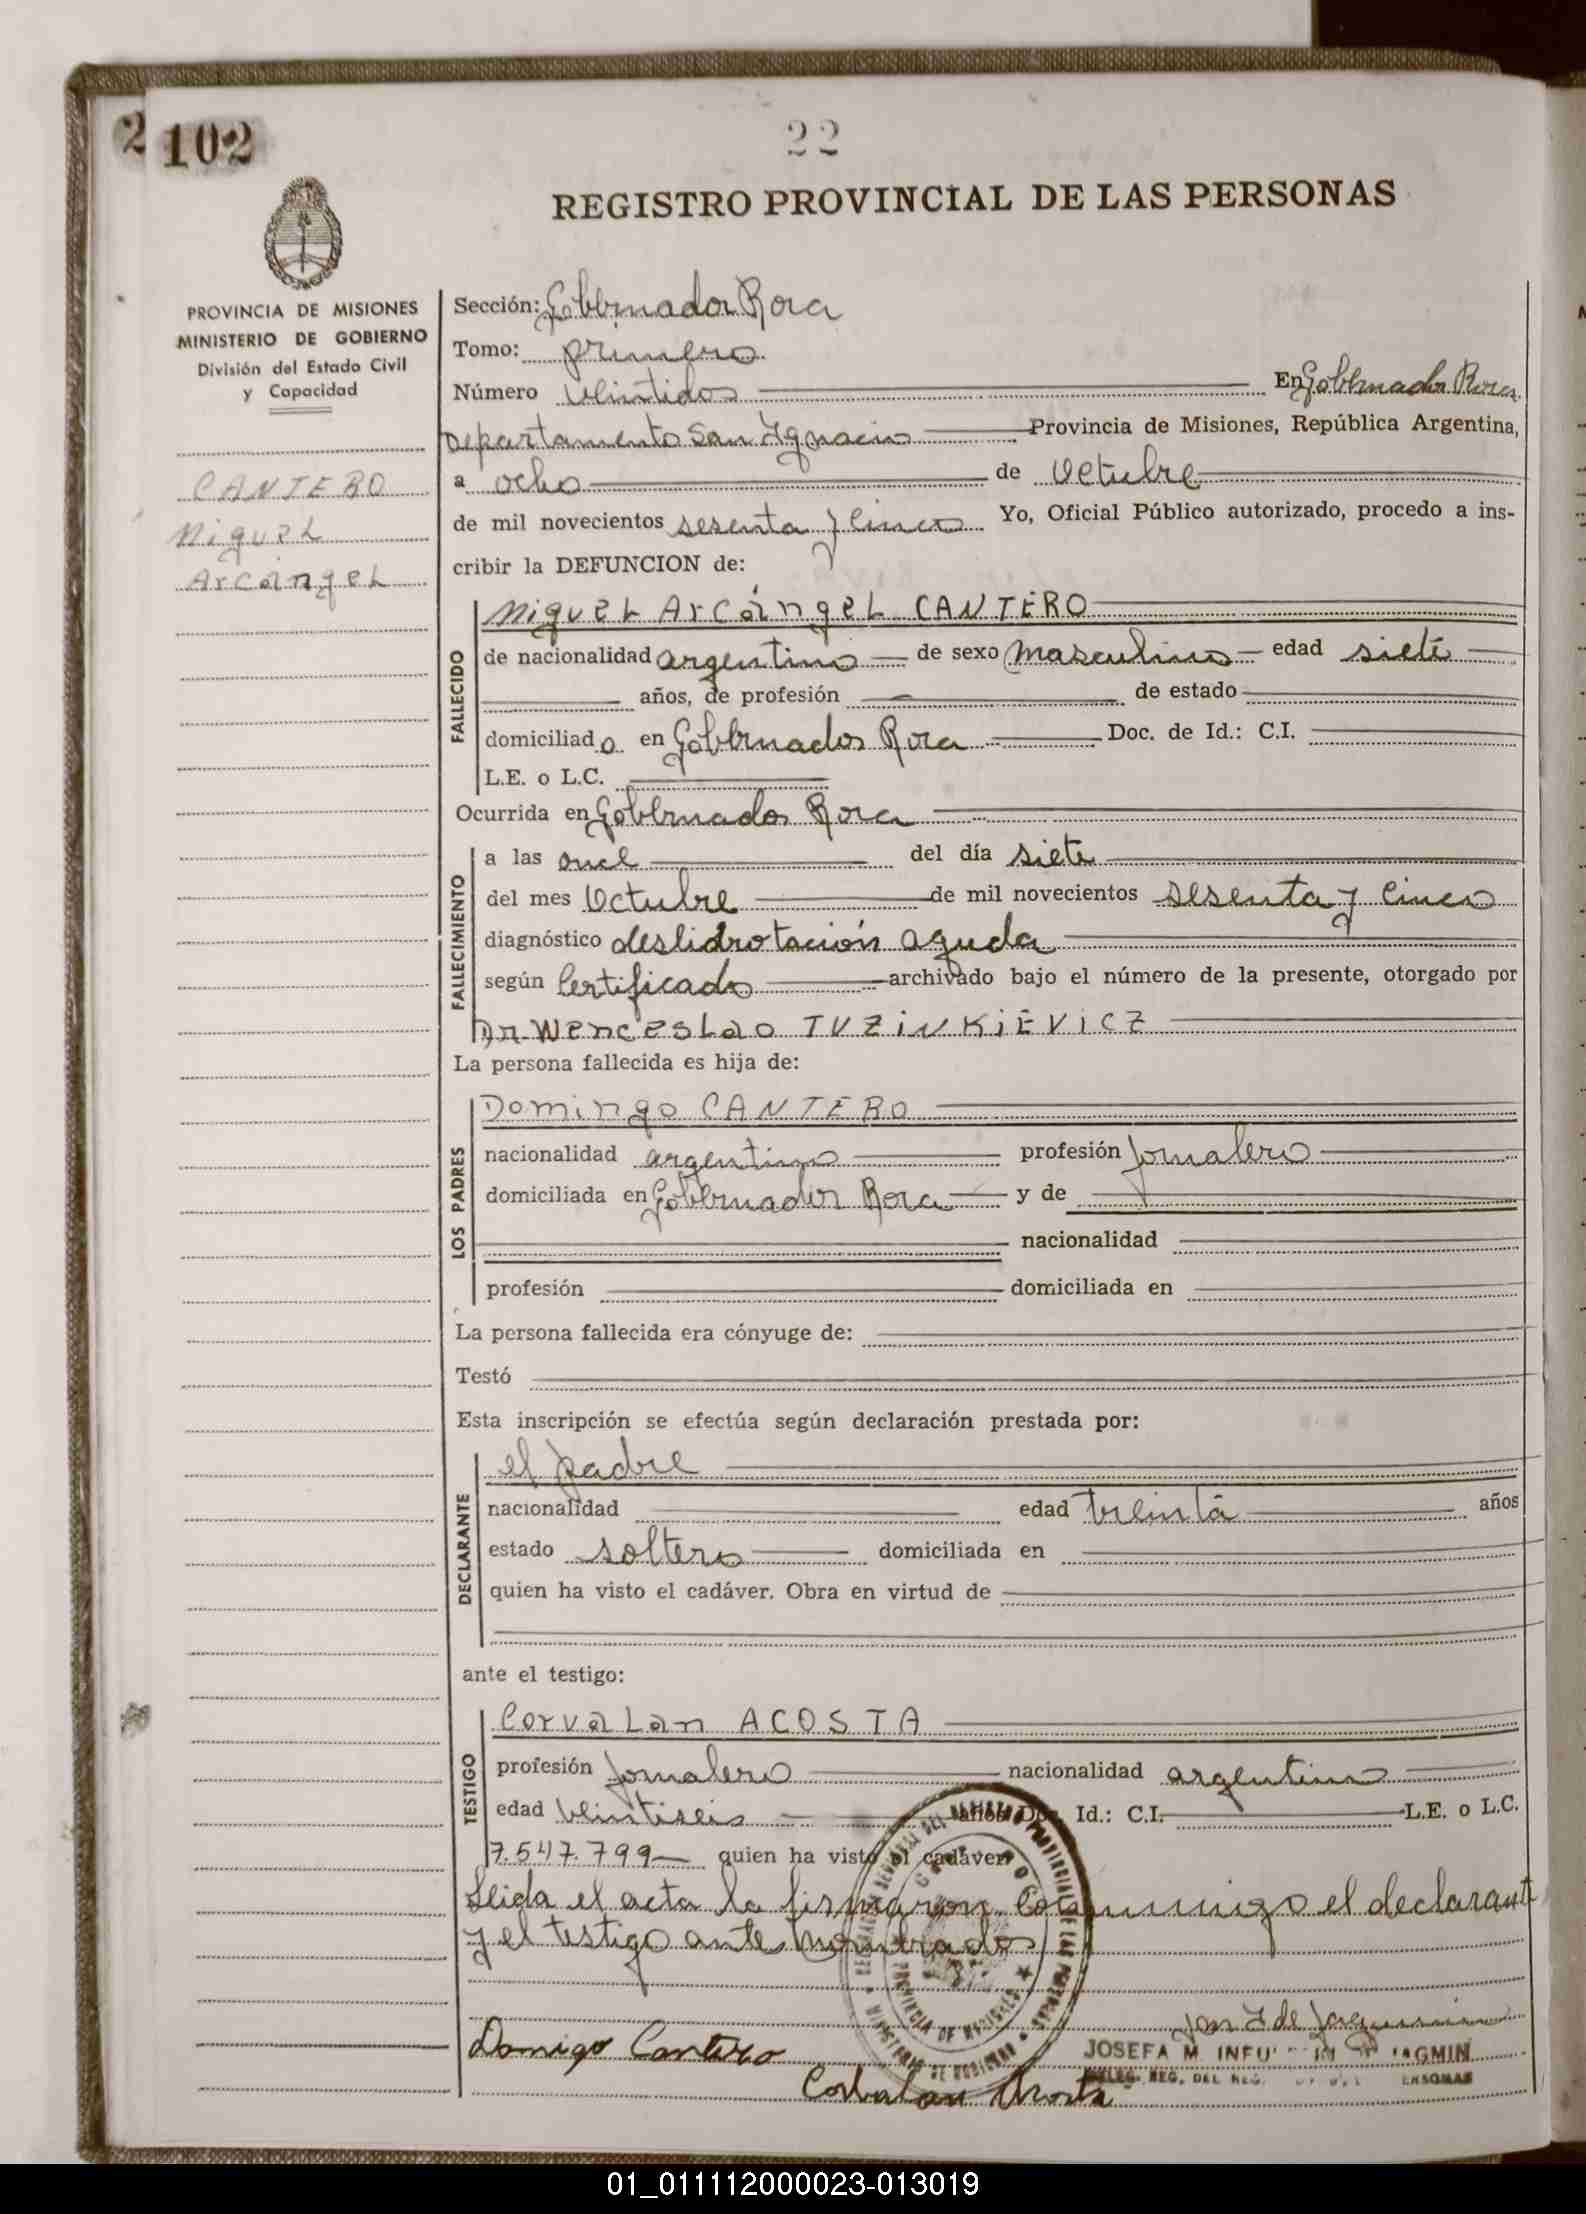 2 102
22
REGISTRO PROVINCIAL DE LAS PERSONAS
PROVINCIA DE MISIONES
MINISTERIO DE GOBIERNO
División del Estado Civil
y Capacidad
CANTERO
Miguel
Arcángel
Sección: Gobernador Roca
Tomo: primero
Número veintidos En Gobernador Roca
Departamento San Ignacio Provincia de Misiones, República Argentina,
a ocho de Octubre
de mil novecientos sesenta y cinco Yo, Oficial Público autorizado, procedo a ins-
cribir la DEFUNCION de:
FALLECIDO
Miguel Arcángel CANTERO
de nacionalidad argentino de sexo masculino edad siete
años, de profesión de estado
domiciliado en Gobernador Roca Doc. de Id.: C.I.
L.E. o L.C.
Ocurrida en Gobernador Roca
FALLECIMIENTO
a las once del día siete
del mes Octubre de mil novecientos sesenta y cinco
diagnóstico deshidrotación aguda
según Certificado archivado bajo el número de la presente, otorgado por
Dr. Wenceslao TUZINKIEVICZ
La persona fallecida es hija de:
LOS PADRES
Domingo CANTERO
nacionalidad argentino profesión Jornalero
domiciliada en Gobernador Roca y de
nacionalidad
profesión domiciliada en
La persona fallecida era cónyuge de:
Testó
Esta inscripción se efectúa según declaración prestada por:
DECLARANTE
el padre
nacionalidad edad treinta años
estado soltero domiciliada en
quien ha visto el cadáver. Obra en virtud de
ante el testigo:
TESTIGO
Corvalan ACOSTA
profesión Jornalero nacionalidad argentino
edad veintiseis años Doc. Id.: C.I. L.E. o L.C.
7.547.799 quien ha visto el cadáver
Leida el acta la firmaron conmigo el declarante
y el testigo antes nombrados
PROVINCIA DE MISIONES
MINISTERIO DE GOBIERNO
Domigo Cantero
Corbalan Acosta
JOSEFA M. DE
DELEG. REG. DEL REG.
01_011112000023-013019